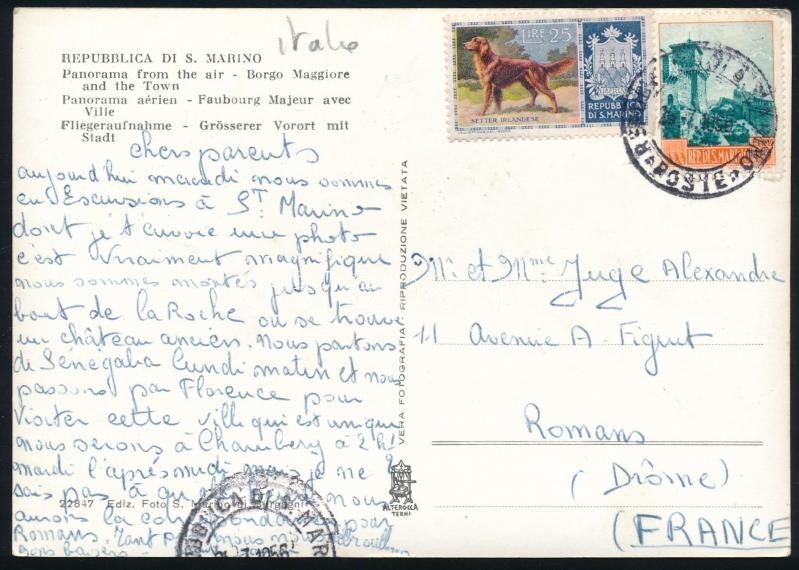 Italie
REPUBBLICA DI S. MARINO
Panorama from the air - Borgo Maggiore
and the Town
Panorama aérien - Faubourg Majeur avec
Ville
Fliegeraufnahme - Grösserer Vorort mit
Stadt
LIRE 25
SETTER IRLANDESE
REPUBBLICA
DI S. MARINO
REP. DI S. MARINO
POSTE
chers parents
aujourd'hui mercredi nous sommes
en Escursions à St Marino
dont je t'envoie une photo
c'est vraiment magnifique
nous sommes montés jusqu'au
bout de la Roche ou se trouve
un château ancien. Nous partons
de Sénégalia lundi matin et nous
passons par Florence pour
visiter cette ville qui est unique
nous serons à Chambéry à 2 h
mardi l'après midi mais je ne
sais pas à quelle nous
aurons la correspondance pour
Romans. nous
bons baisers
22847 Ediz. Foto S. Marino di
BBLICA DI S. MAR
7.1956
VERA FOTOGRAFIA - RIPRODUZIONE VIETATA
ALTEROCCA
TERNI
Mr. et Mme Juge Alexandre
11 Avenue A - Figuet
Romans
(Drôme)
(FRANCE)